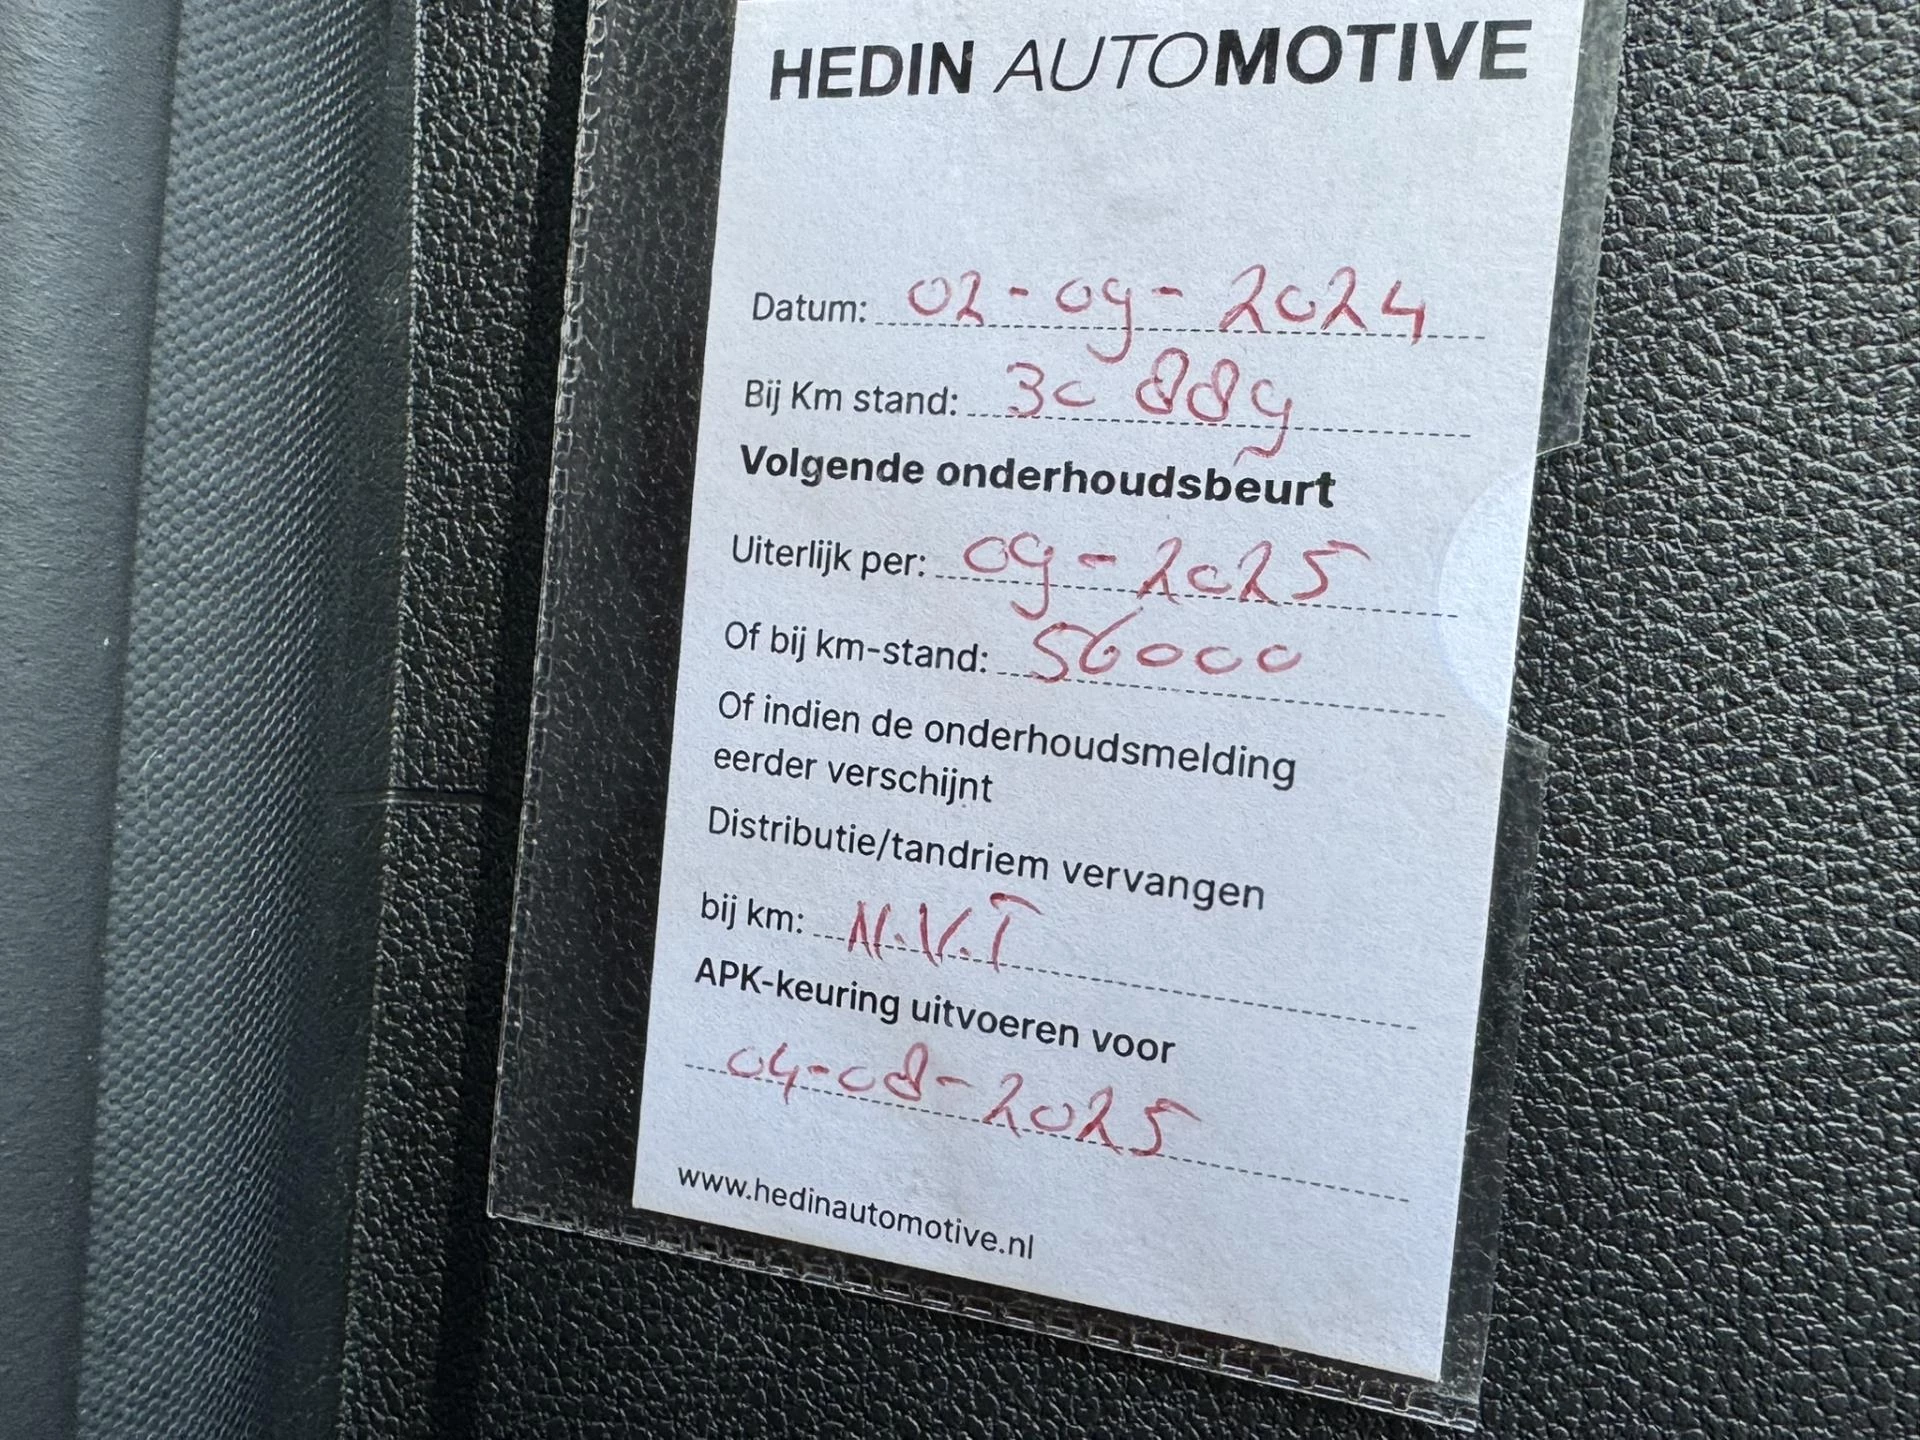 HEDIN AUTOMOTIVE
Datum: 02-09-2024
Bij Km stand: 30 889
Volgende onderhoudsbeurt
Uiterlijk per: 09-2025
Of bij km-stand: 56000
Of indien de onderhoudsmelding
eerder verschijnt
Distributie/tandriem vervangen
bij km: N.V.T
APK-keuring uitvoeren voor
04-08-2025
www.hedinautomotive.nl